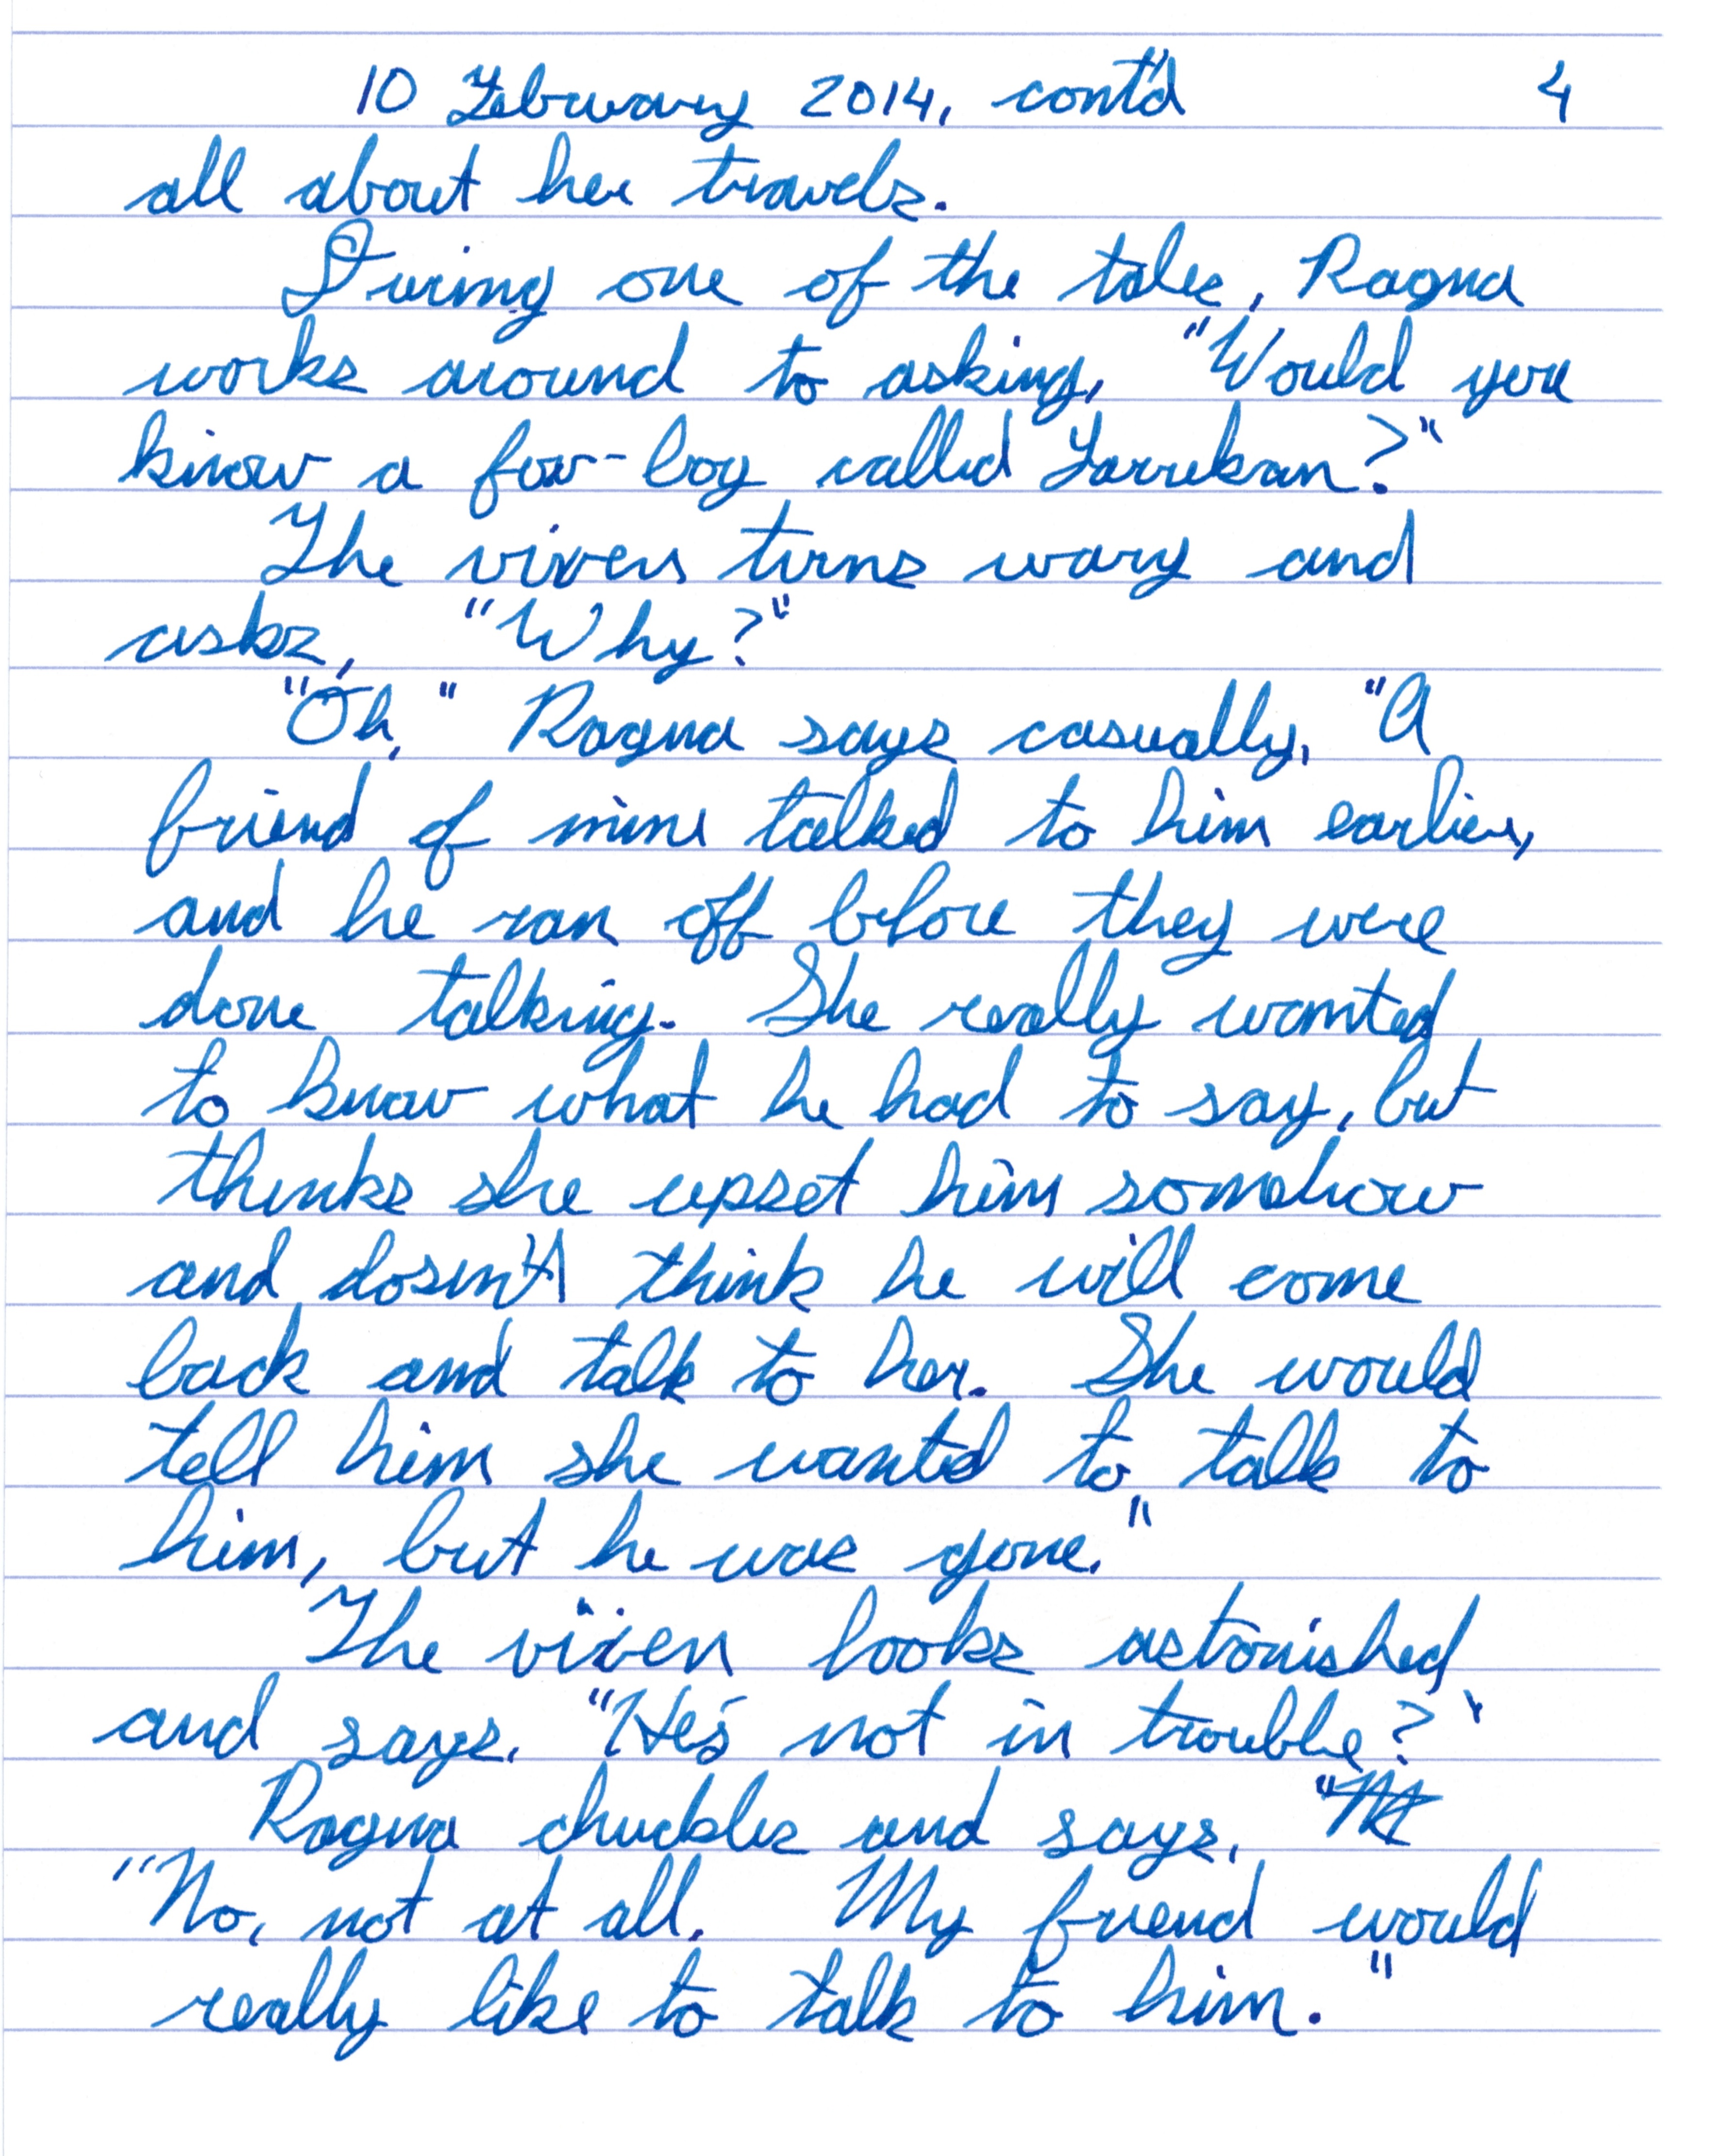 10 February 2014, cont'd 4
all about her travels.
During one of the tales, Ragna
works around to asking, "Would you
know a fox-boy called Larrekan?"
The vixen turns wary and
asks, "Why?"
"Oh," Ragna says casually, "A
friend of mine talked to him earlier,
and he ran off before they were
done talking. She really wanted
to know what he had to say, but
thinks she upset him somehow
and dosen't think he will come
back and talk to her. She would
tell him she wanted to talk to
him, but he was gone."
The vixen looks astonished
and says, "He's not in trouble?"
Ragna chuckles and says,
"No, not at all. My friend would
really like to talk to him."